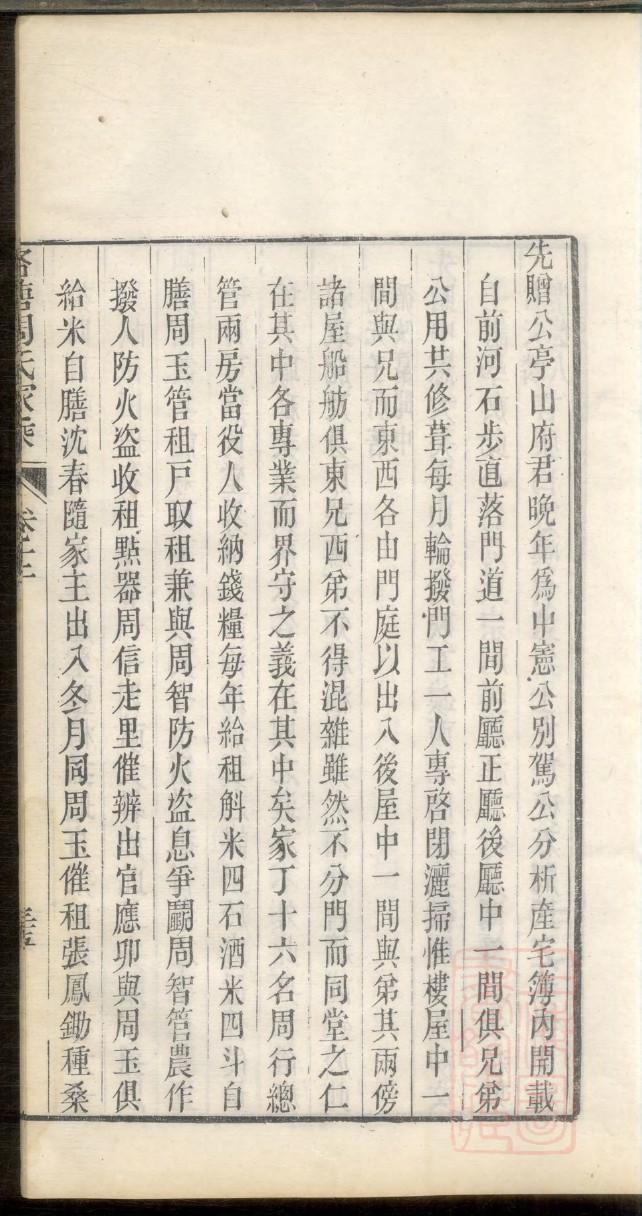 先贈公亭山府君晚年爲中憲公別駕公分析產宅簿內開載
自前河石步直落門道一間前廳正廳後廳中一間俱兄弟
公用共修葺每月輪撥門工一人專啓閉灑掃惟樓屋中一
間與兄而東西各由門庭以出入後屋中一間與弟其兩傍
諸屋船舫俱東兄西弟不得混雜雖然不分門而同堂之仁
在其中各專業而界守之義在其中矣家丁十六名周行總
管兩房當役人收納錢糧每年給租斛米四石酒米四斗自
膳周玉管租戸取租兼與周智防火盜息爭鬬周智管農作
撥人防火盜收租點器周信走里催辨出官應卯與周玉俱
給米自膳沈春隨家主出入冬月同周玉催租張鳳鋤種桑
周氏家乘